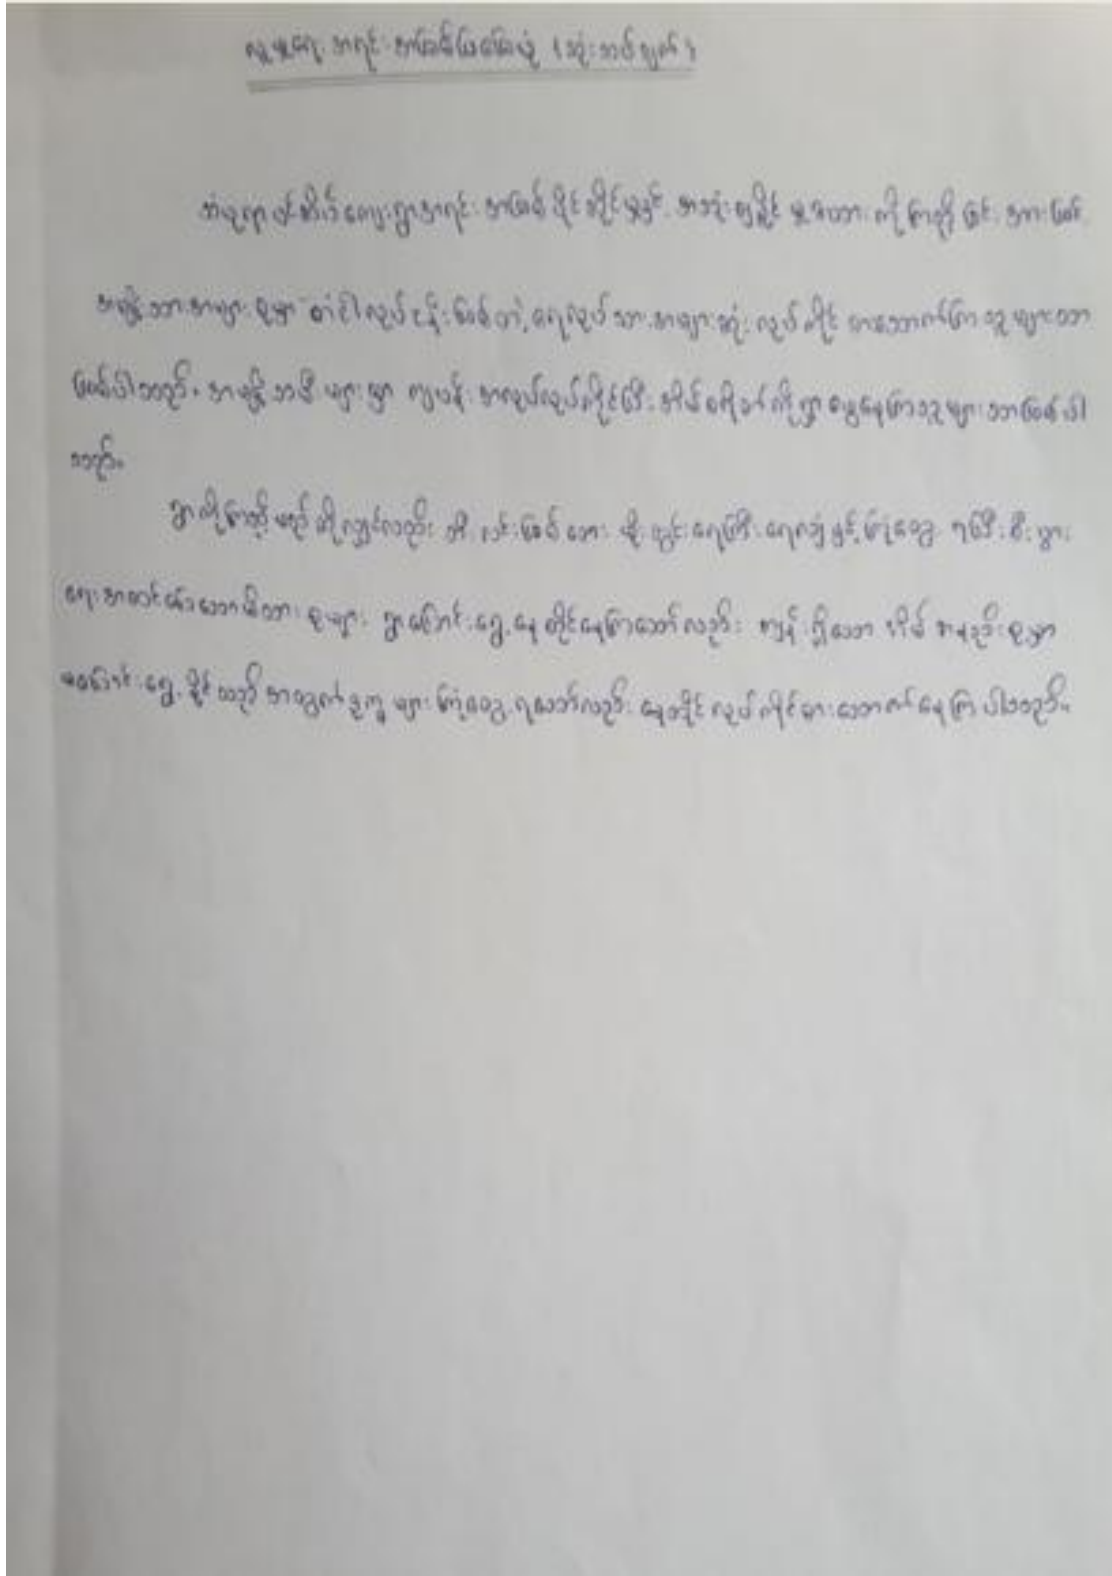 လူမှုရေး အရင်းအမြစ်ပြမြေပုံ (သုံးသပ်ချက်)
ကျေးရွာအရင်းအမြစ် ပိုင်ဆိုင်မှုနှင့် အသုံးချနိုင်မှုအား ကိုကြည့်ခြင်းအားဖြင့်
အမျိုးသားအများစုမှာ တံငါလုပ်ငန်းဖြစ်တဲ့ ရေလုပ်သားအများဆုံး လုပ်ကိုင် စားသောက်ကြသူများသာ
ဖြစ်ပါသည်။ အမျိုးသမီးများမှာ ကျပန်းအလုပ်လုပ်ကိုင်ပြီး အိမ်စရိတ်ကိုရှာဖွေနေကြသူများသာဖြစ်ပါ
သည်။
ရွာကိုကြည့်မည်ဆိုလျှင်လည်း မိုးတွင်းရေကြီးရေလျှံနှင့်ကြုံတွေ့ရပြီး စီးပွား
ရေးအဆင်ပြေသောမိသားစုများ ရွာပြောင်းရွှေ့နေထိုင်နေကြသော်လည်း ကျန်ရှိသော အိမ်အနည်းစုမှာ
မပြောင်းရွှေ့နိုင်သည့်အတွက် ဒုက္ခများကြုံတွေ့ရသော်လည်း နေထိုင်လုပ်ကိုင်စားသောက်နေကြပါသည်။